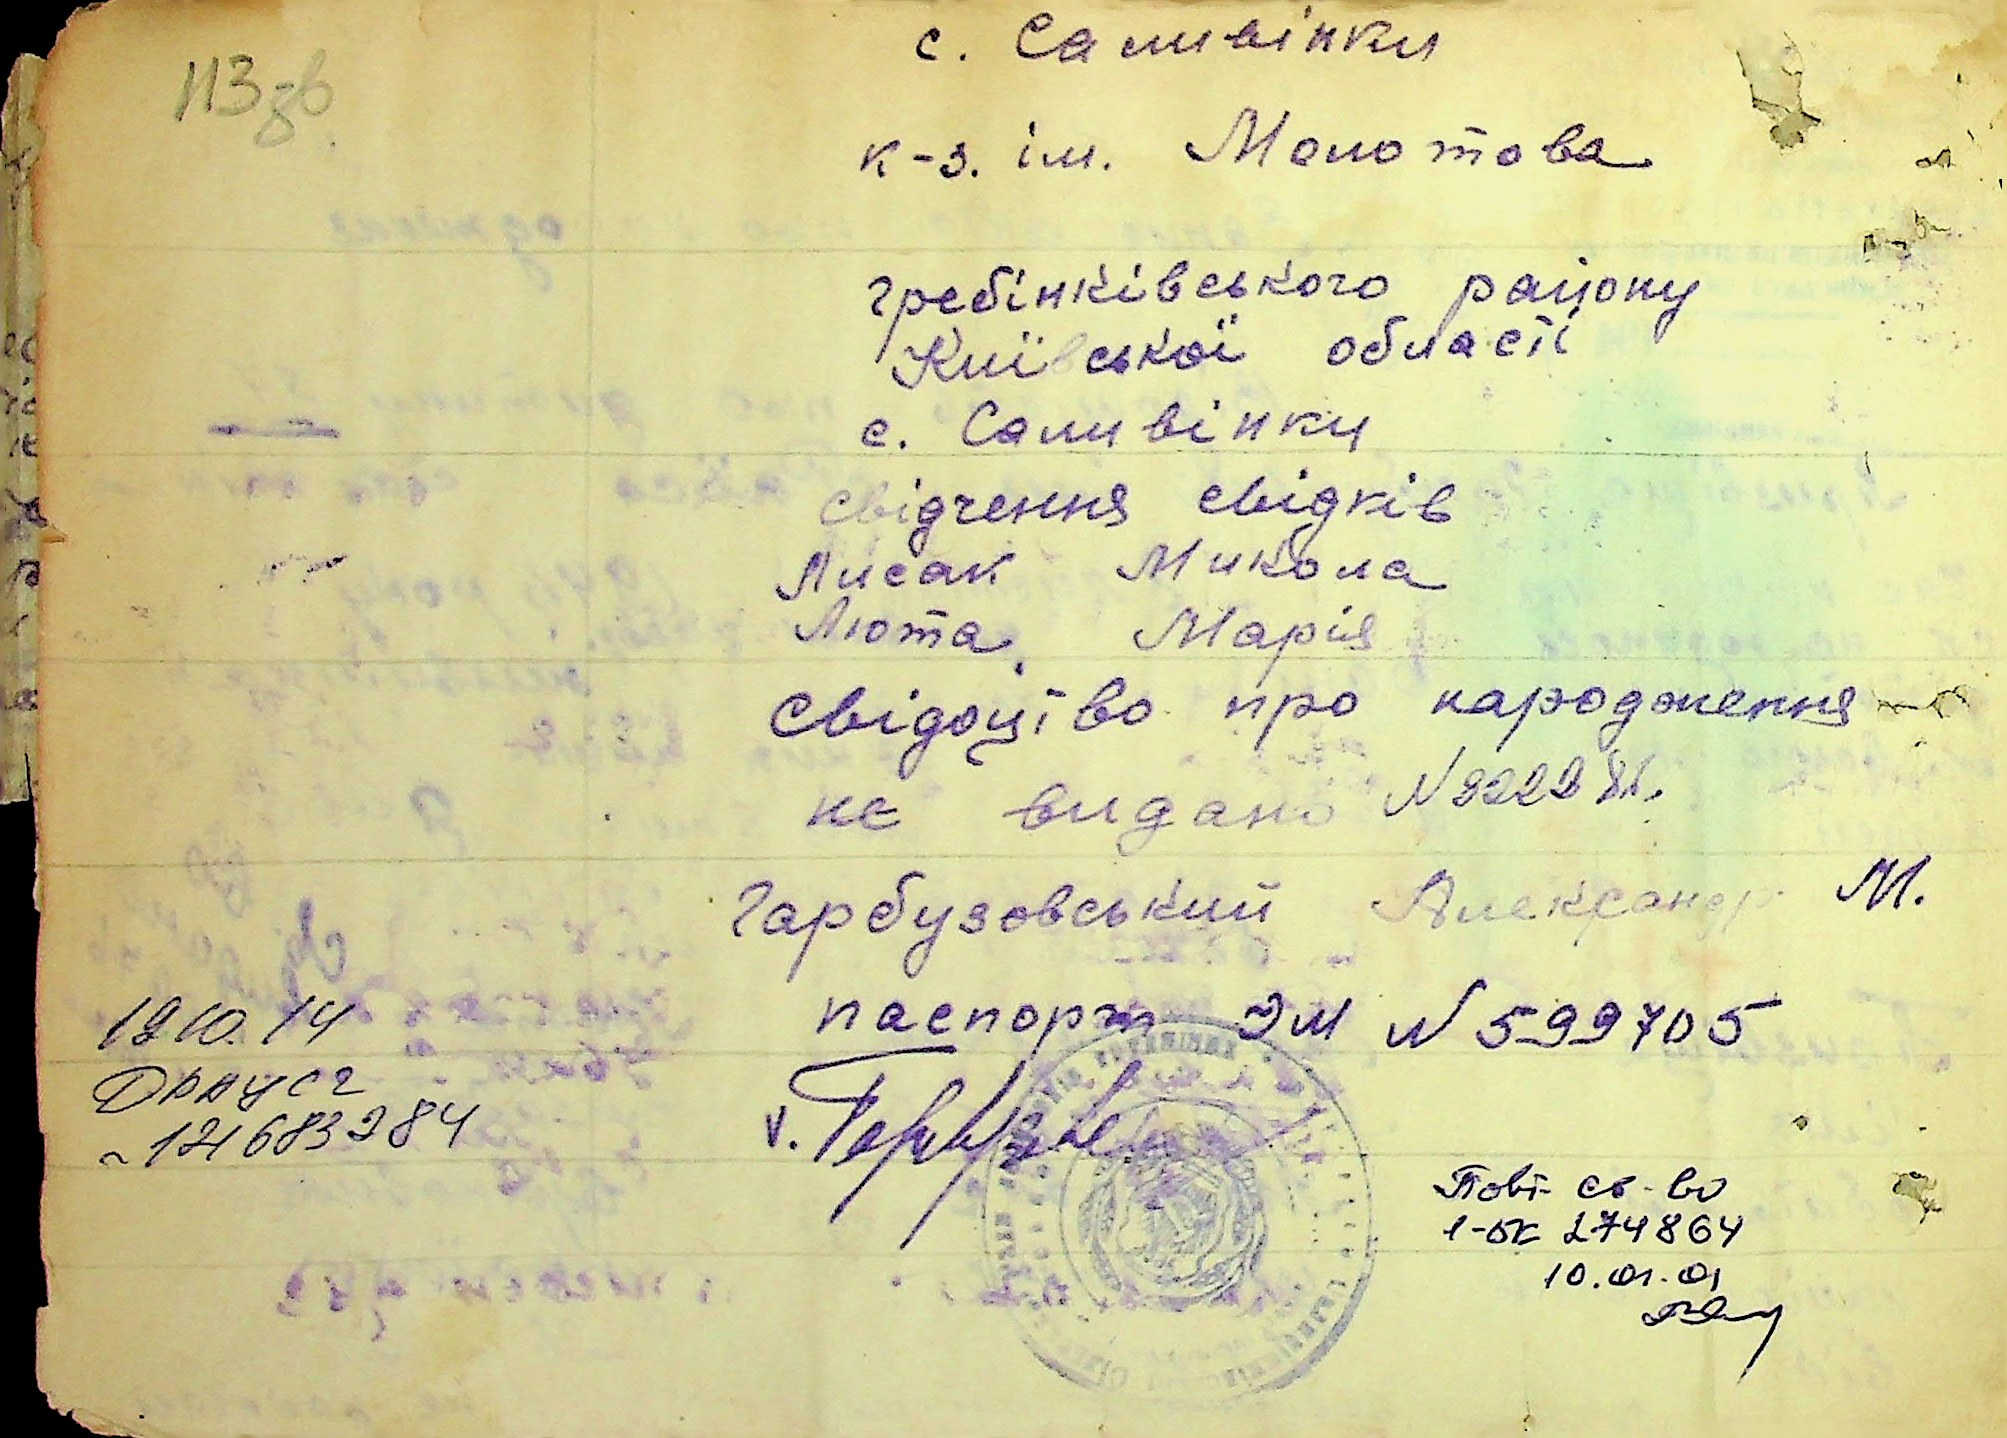 113 зв
с. Саливінки
к-з. ім. Молотова
гребінківського району
Київської області
с. Саливінки
свідчення свідків
Лисак Микола
Люта Марія
Свідоцтво про народження
не видано N 222281.
Гарбузовський Александр М.
паспорт ЭМ N 599705
1210.14
ДРАЦСГ
~121683284
Повт св-во
1-ок 274864
10.01.01